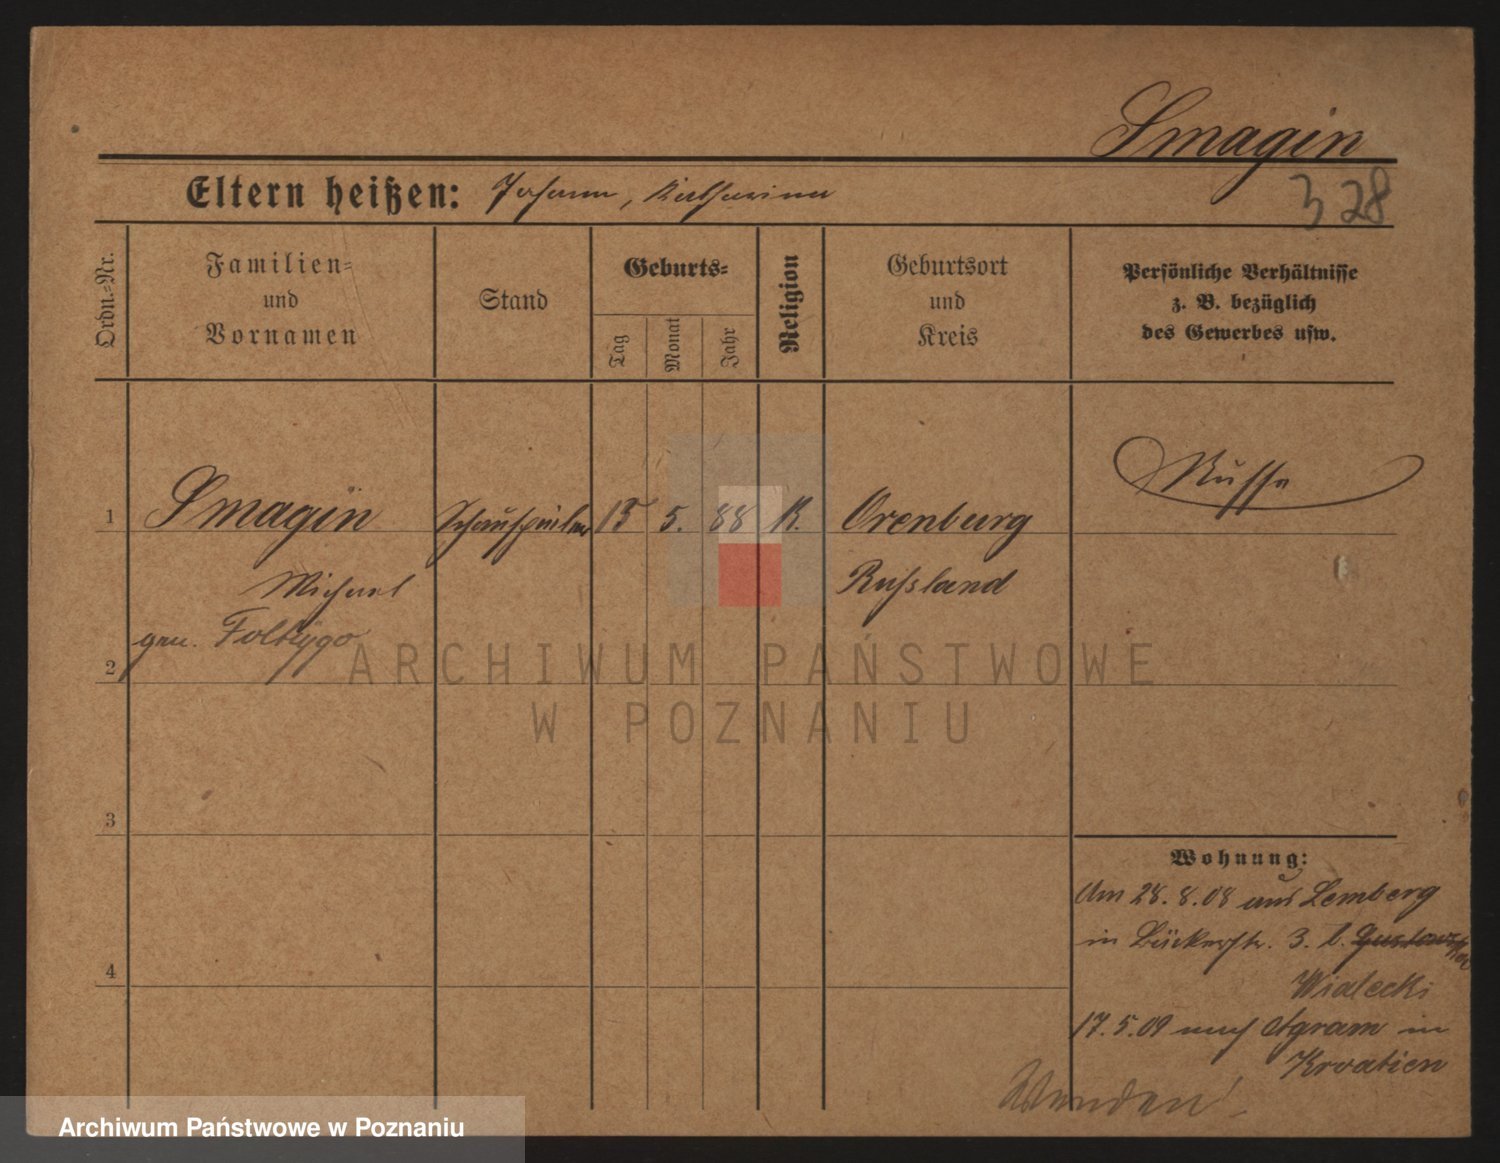 Smagin
328
Eltern heißen: Johann, Katharina
Ordn.=Nr.
Familien=
und
Vornamen
Stand
Geburts=
Tag
Monat
Jahr
Religion
Geburtsort
und
Kreis
Persönliche Verhältnisse
z. B. bezüglich
des Gewerbes usw.
1 Smagin Schauspieler 15 5. 88 K. Orenburg Russe
Michael Russland
gen.
2
3
4
Wohnung:
Am 28.8.08 aus Lemberg
in Bäckerstr. 3. b.
Wialecki
17.5.09 nach Agram in
Kroatien
Wenden!
ARCHIWUM PAŃSTWOWE
W POZNANIU
Archiwum Państwowe w Poznaniu